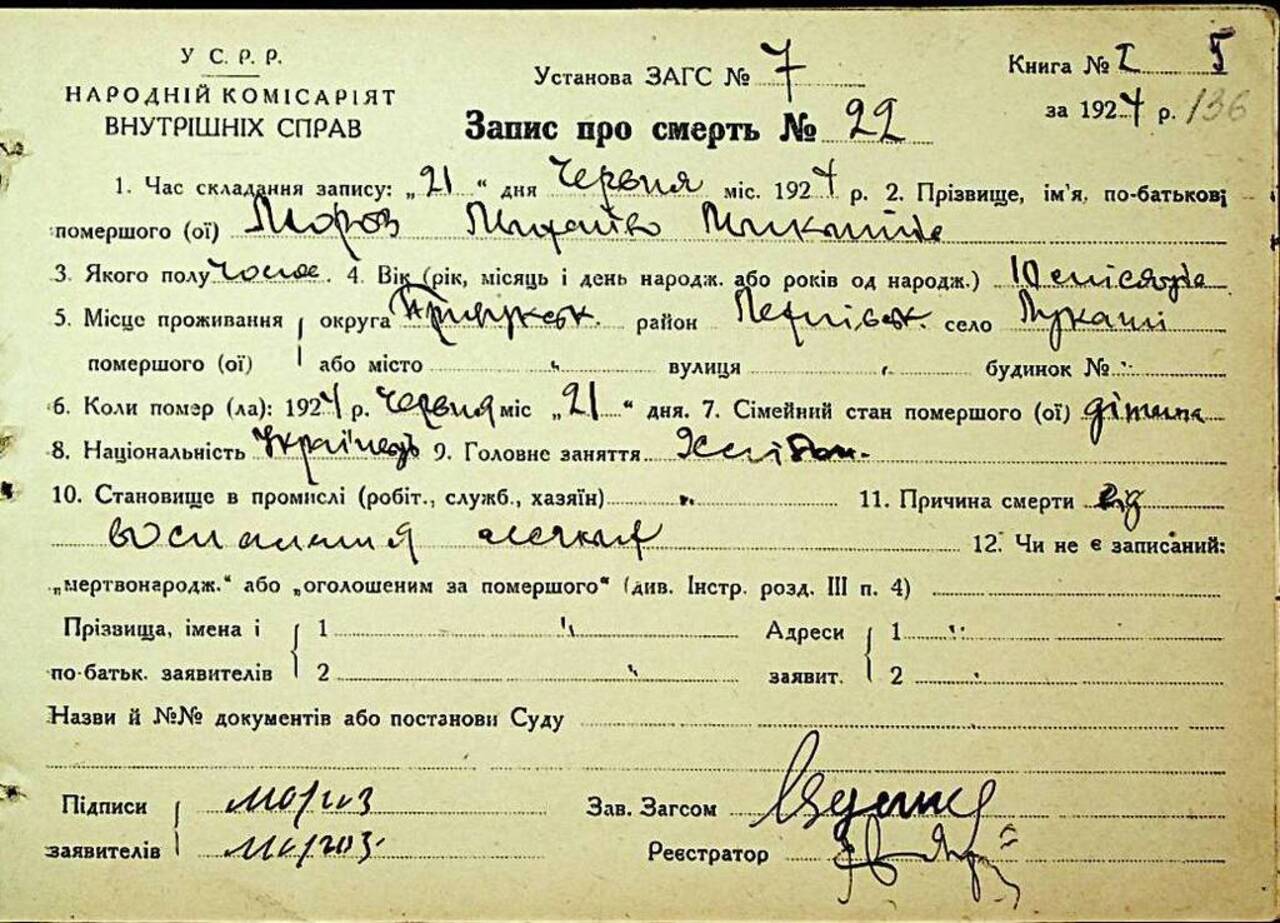 У С. Р. Р.
НАРОДНІЙ КОМІСАРІЯТ
ВНУТРІШНІХ СПРАВ
Установа ЗАГС № 7
Запис про смерть № 22
Книга № I 5
за 1924 р. 136
1. Час складання запису: „21“ дня Червня міс. 1924 р. 2. Прізвище, ім'я, по-батькові
помершого (ої) Мороз Михайло
3. Якого полу 4. Вік (рік, місяць і день народж. або років од народж.) 10 місяців
5. Місце проживання округа Прилуцьк. район село
помершого (ої) або місто вулиця будинок №
6. Коли помер (ла): 1924 р. Червня міс „21“ дня. 7. Сімейний стан помершого (ої) дитина
8. Національність Українець 9. Головне заняття Хлібор.
10. Становище в промислі (робіт., служб., хазяїн) 11. Причина смерти від
воспаления легких
12. Чи не є записаний:
„мертвонародж.“ або „оголошеним за помершого“ (див. Інстр. розд. III п. 4)
Прізвища, імена і 1 Адреси 1
по-батьк. заявителів 2 заявит. 2
Назви й №№ документів або постанови Суду
Підписи мороз Зав. Загсом
заявителів мороз Реєстратор